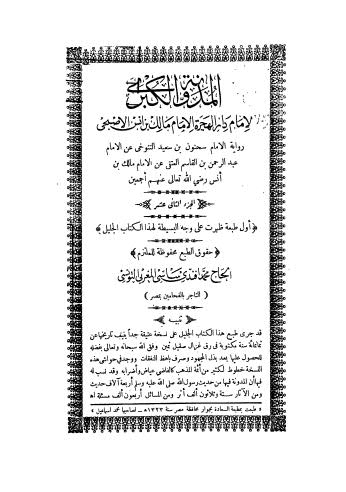 المدونة الكبرى
لإمام دار الهجرة الإمام مالك بن أنس الأصبحي
رواية الامام سحنون بن سعيد التنوخى عن الامام
عبد الرحمن بن القاسم العتقى عن الامام مالك بن
أنس رضي الله تعالى عنهم أجمعين
الجزء الثانى عشر
﴿أول طبعة ظهرت على وجه البسيطة لهذا الكتاب الجليل﴾
﴿حقوق الطبع محفوظة للملتزم﴾
الحاج محمد أفندى ساسى المغربى التونسى
( التاجر بالفحامين بمصر )
تنبيه
قد جرى طبع هذا الكتاب الجليل على نسخة عتيقة جداً ينيف تاريخها عن
ثمانمائة سنة مكتوبة فى رق غزال صقيل ثمين وفق الله سبحانه وتعالى بفضله
للحصول عليها بعد بذل المجهود وصرف باهظ النفقات ووجد فى حواشى هذه
النسخة خطوط لكثير من أئمة المذهب كالقاضى عياض وأضرابه وقد نسب له
فيها أن المدونة فيها من حديث رسول الله صلى الله عليه وسلم أربعة آلاف حديث
ومن الآثار ستة وثلاثون ألف أثر ومن المسائل أربعون ألف مسئلة اه
﴿ طبعت بمطبعة السعادة بجوار محافظة مصر سنة ١٣٢٣ هـ ـ لصاحبها محمد اسماعيل ﴾